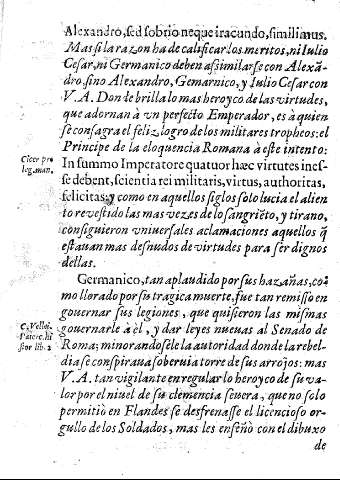 Alexandro, sed sobrio neque iracundo, simillimus.
Mas si la razon ha de calificar los meritos, ni Iulio
Cesar, ni Germanico deben assimilarse con Alexã-
dro, sino Alexandro, Gemarnico, y Iulio Cesar con
V. A. Donde brilla lo mas heroyco de las virtudes,
que adornan à vn perfecto Emperador, es à quien
se consagra el feliz logro de los militares tropheos: el
Principe de la eloquencia Romana à este intento:
Cicer pro
leg. man.
In summo Imperatore quatuor hæc virtutes ines-
se debent, scientia rei militaris, virtus, authoritas,
felicitas; y como en aquellos siglos solo lucia el alien
to revestido las mas vezes de lo sangriẽto, y tirano,
consiguieron vniuersales aclamaciones aquellos q̃
estauan mas desnudos de virtudes para ser dignos
dellas.
Germanico, tan aplaudido por sus hazañas, co-
mo llorado por su tragica muerte, fue tan remisso en
gouernar sus legiones, que quisieron las mismas
C. Vellei.
Paterc. hi
stor lib. 2
gouernarle à èl, y dar leyes nueuas al Senado de
Roma; minorandosele la autoridad donde la rebel-
dia se conspiraua soberuia torre de sus arrojos: mas
V. A. tan vigilante en regular lo heroyco de su va-
lor por el niuel de su clemencia seuera, que no solo
permitiò en Flandes se desfrenasse el licencioso or-
gullo de los Soldados, mas les enseñò con el dibuxo
de